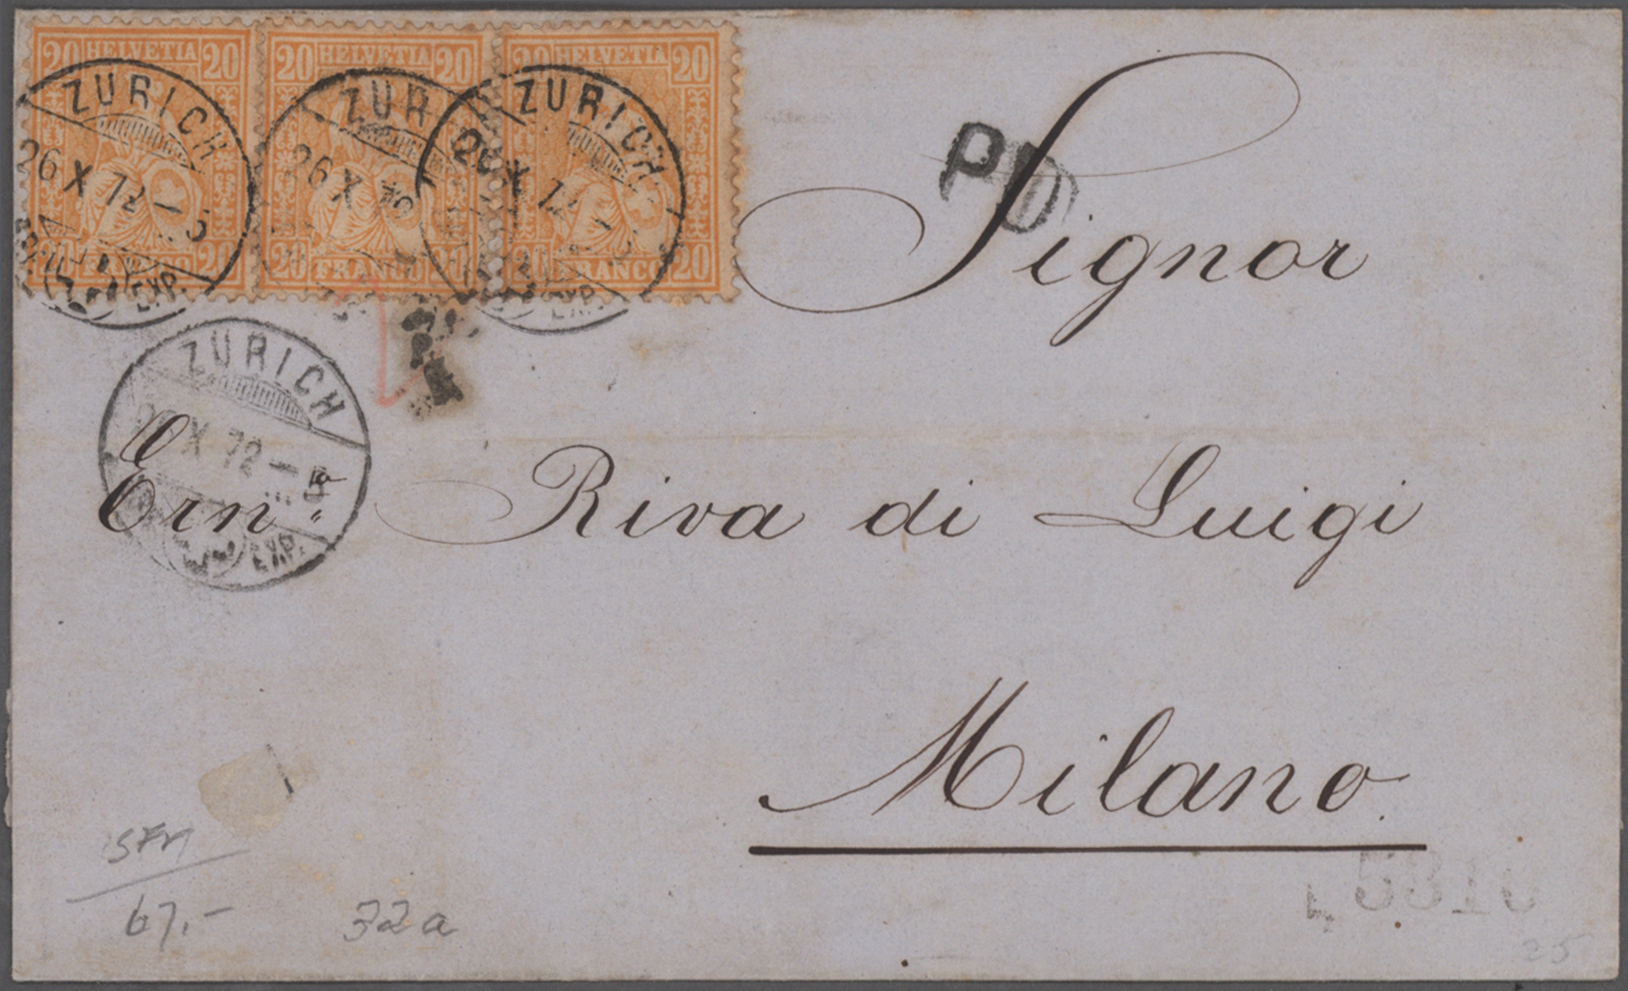 20 HELVETIA 20 20 HELVETIA 20 20 HELVETIA 20
ZURICH ZUR ZURICH
26 X 72 – 5 26 X 72 26 X 72 – 5
20 20 20 FRANCO 20 20 FRANCO 20
EXP. EXP.
PD
Signor
ZURICH
X 72 – 5
EXP.
Ern.º Riva di Luigi
Milano.
SFM
67.-
32a
25